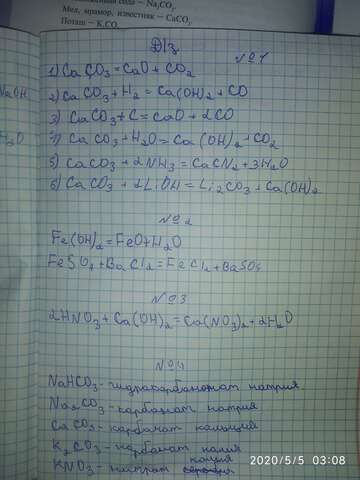 сода – Na₂CO₃.
Мел, мрамор, известняк – CaCO₃
Поташ – K₂CO₃
Д/з.
№1
1) CaCO₃ = CaO + CO₂
2) CaCO₃ + H₂ = Ca(OH)₂ + CO
3) CaCO₃ + C = CaO + 2CO
4) CaCO₃ + H₂O = Ca(OH)₂ + CO₂
5) CaCO₃ + 2NH₃ = CaCN₂ + 3H₂O
6) CaCO₃ + 2LiOH = Li₂CO₃ + Ca(OH)₂
№2
Fe(OH)₂ = FeO + H₂O
FeSO₄ + BaCl₂ = FeCl₂ + BaSO₄
№3
2HNO₃ + Ca(OH)₂ = Ca(NO₃)₂ + 2H₂O
№4
NaHCO₃ - гидрокарбонат натрия
Na₂CO₃ - карбонат натрия
CaCO₃ - карбонат кальция
K₂CO₃ - карбонат калия
KNO₃ - нитрат калия
NaOH
2020/5/5 03:08